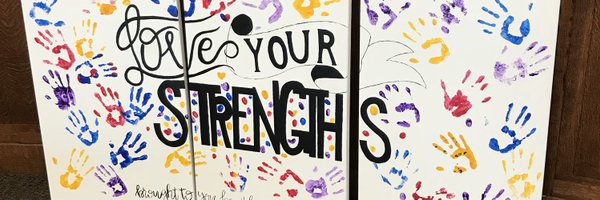 Love YOUR
STRENGTHS
brought to you by